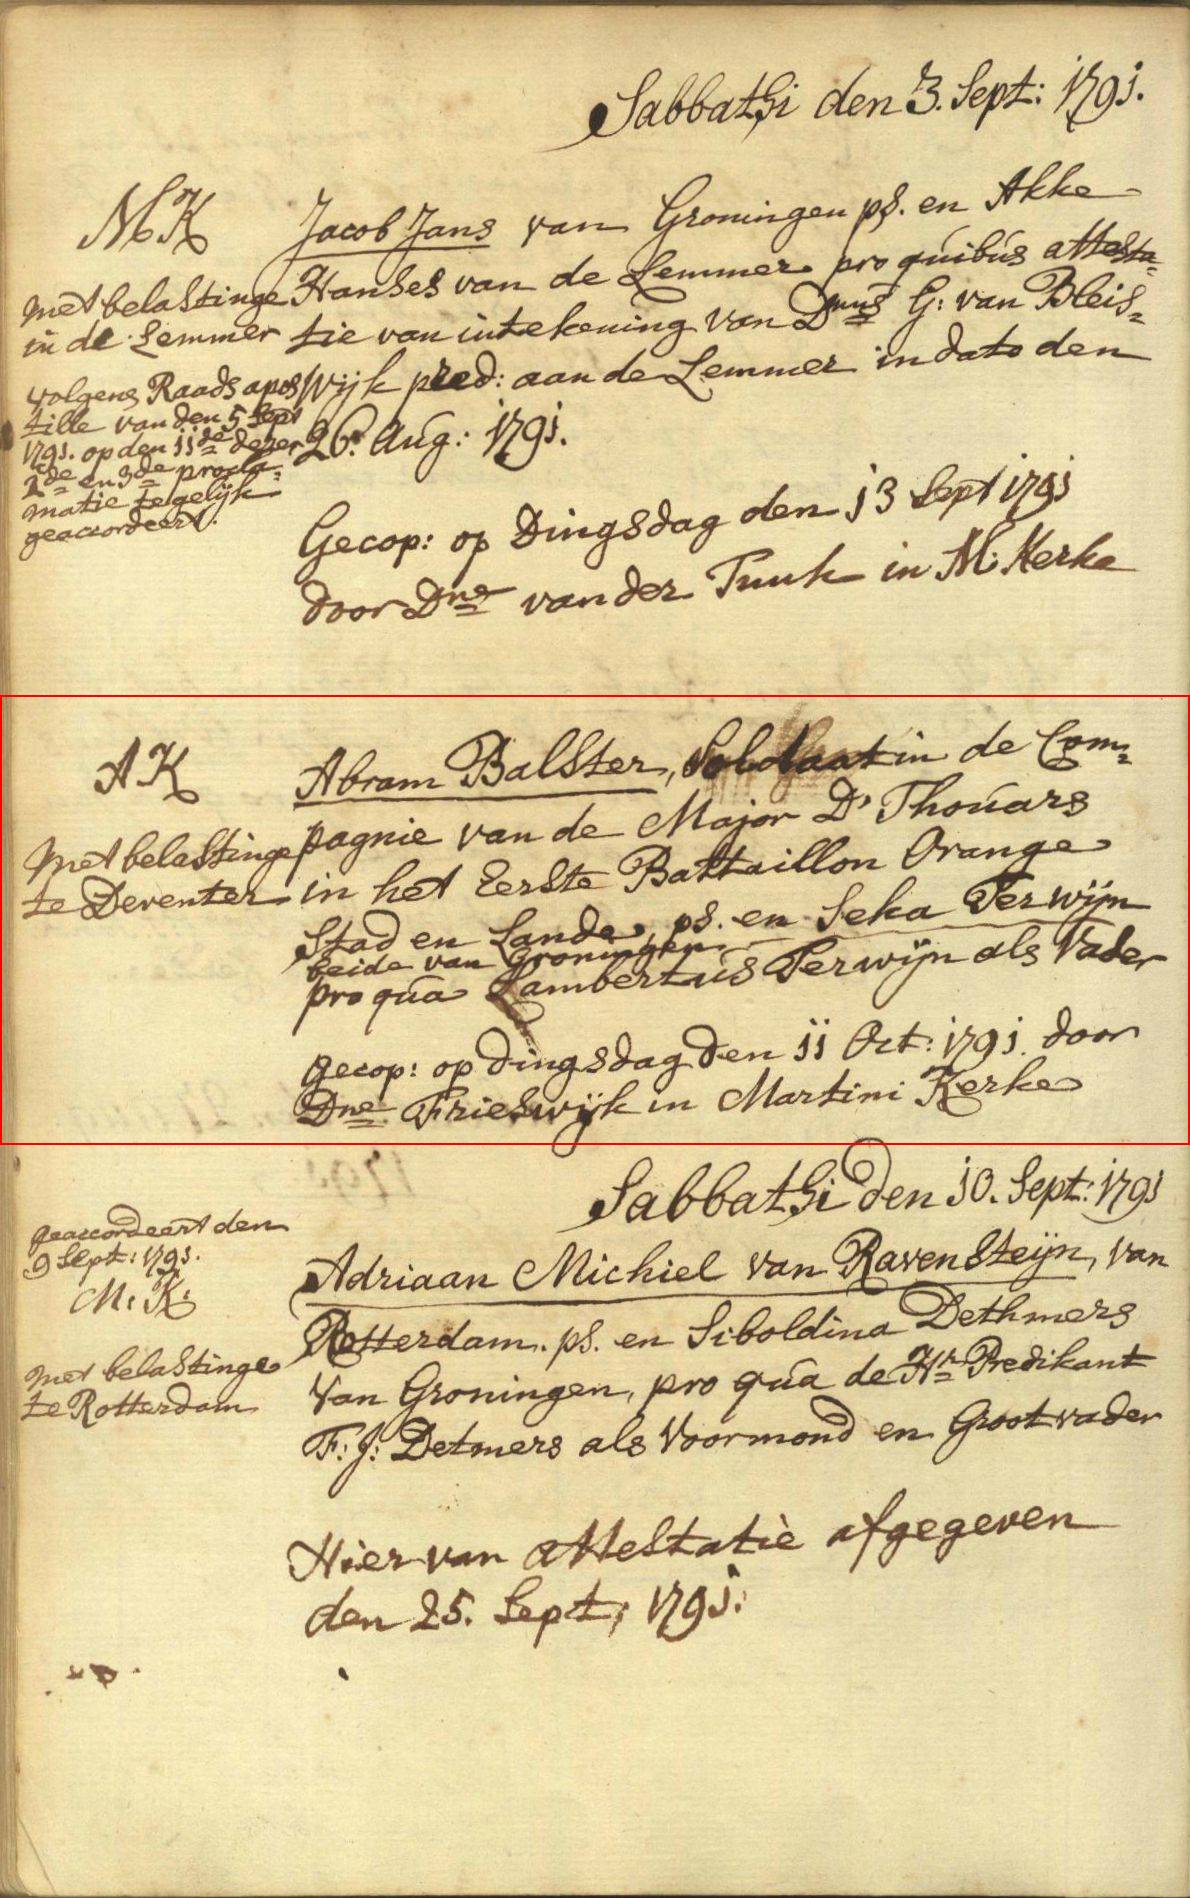 Sabbathi den 3. Sept: 1791.
MK
Jacob Jans van Groningen ps. en Akke
met belastinge
Hanses van de Lemmer pro quibus attesta=
in de Lemmer
tie van intekening van Dnus G: van Bleis=
volgens Raads apos
wijk pred: aan de Lemmer in dato den
tille van den 5 Sept
1791. op den 11de dezer
26. Aug: 1791.
2de en 3de procla=
matie tegelijk
geaccordeert.
Gecop: op Dingsdag den 13 Sept 1791
door Dne van der Tuuk in M: Kerke
AK
Abram Balster, Soldaat in de Com=
pagnie van de Major D' Thouars
met belastinge
te Deventer
in het Eerste Battaillon Orange
Stad en Lande, ps. en Seka Terwijn
beide van Groningen
pro qua Lambertus Terwijn als Vader
gecop: op dingsdag den 11 Oct: 1791. door
Dne Frieswijk in Martini Kerke
Sabbathi den 10. Sept: 1791
geaccordeert den
9 Sept: 1791.
M: K:
Adriaan Michiel van Ravensteijn, van
Rotterdam. ps. en Siboldina Dethmers
met belastinge
te Rotterdam
van Groningen, pro qua de Hr Predikant
F: J: Detmers als Voormond en Grootvader
Hier van attestatie afgegeven
den 25. Sept: 1791.